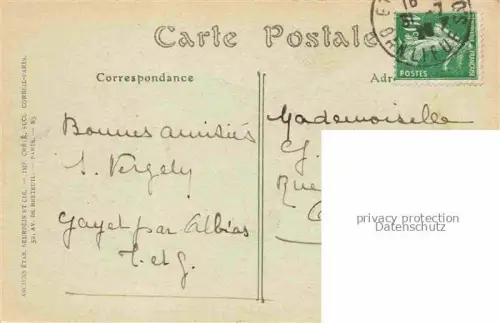 Carte Postale
Correspondance
Bonnes amitiés
S. Vergely
Gayet par Albias
T. et G.
Mademoiselle
G.
Rue
privacy protection
Datenschutz
POSTES
ANCIENS ETAB. NEURDEIN ET CIE. — IMP. CRÉTÉ, SUCC. CORBEIL-PARIS.
52, AV. DE BRETEUIL — PARIS. —